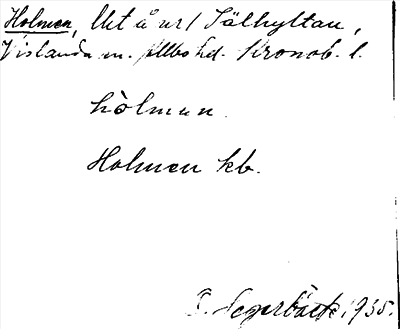 Holmen, Uet å nr 1 Sälhyltan,
Vislanda sn. Allbo hd. Kronob. l.
hòlmen.
Holmen kb.
Segerbäck 1935.